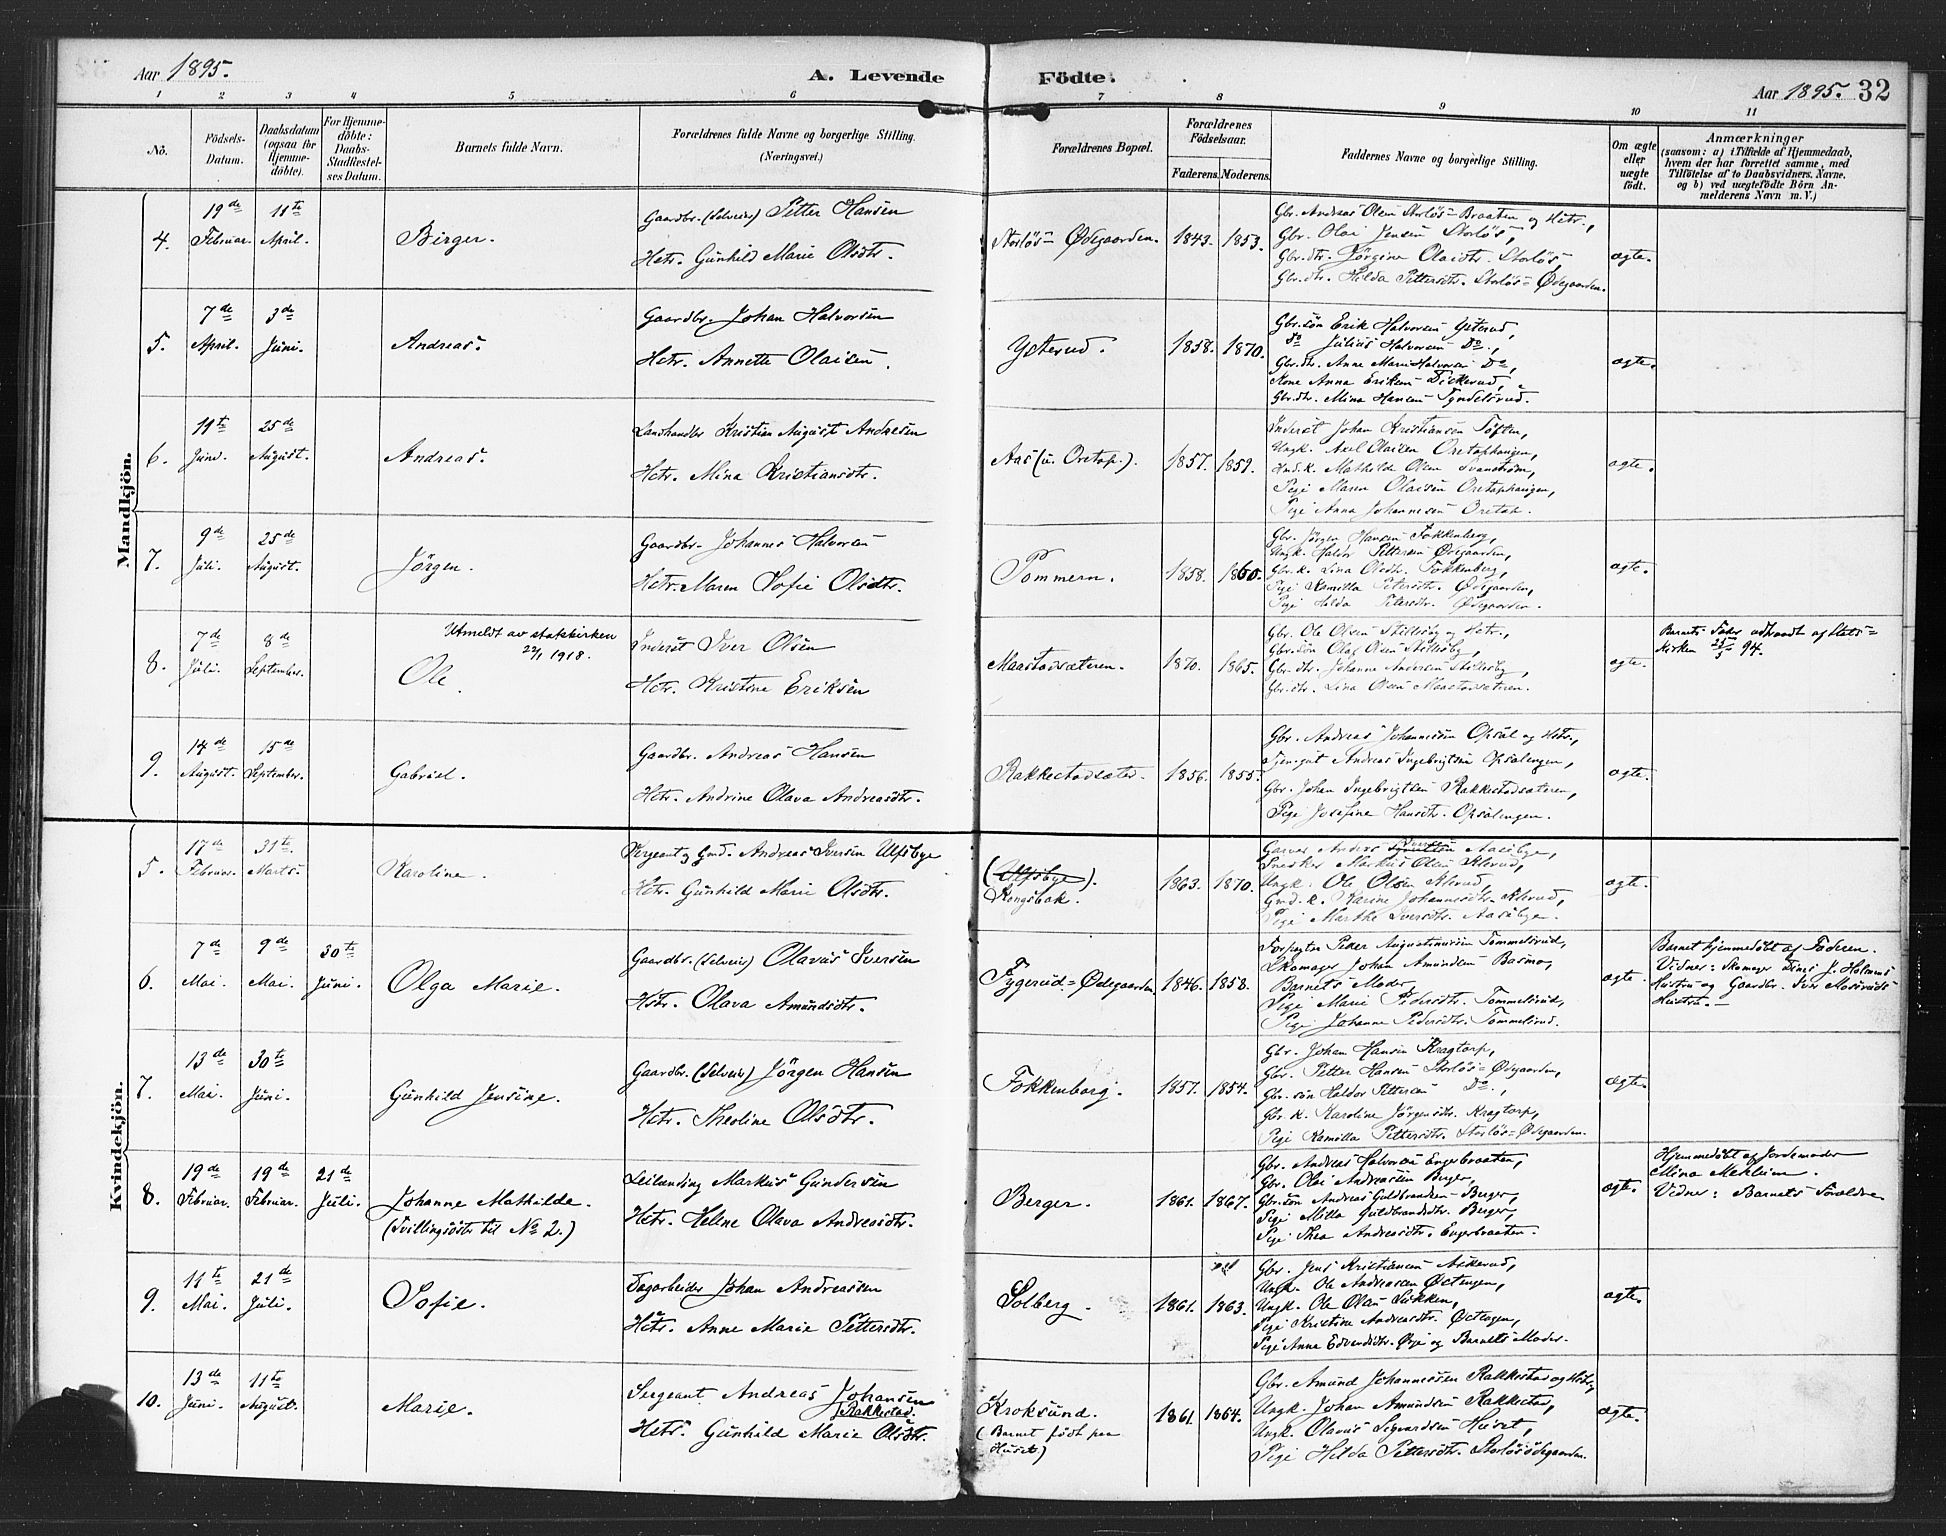 Aar 1895.
A. Levende Födte.
Aar 1895. 32
1 2 3 4 5 6 7 8 9 10 11
No.
Födsels-Datum.
Daabsdatum (ogsaa for Hjemme-döbte).
For Hjemme-döbte: Daabs-Stadfæstel-ses Datum.
Barnets fulde Navn.
Forældrenes fulde Navne og borgerlige Stilling. (Næringsvei.)
Forældrenes Bopæl.
Forældrenes Födselsaar.
Faderens. Moderens.
Faddernes Navne og borgerlige Stilling.
Om ægte eller uægte födt.
Anmærkninger
(saasom: a) i Tilfælde af Hjemmedaab,
hvem der har forrettet samme, med
Tilföielse af to Daabsvidners Navne,
og b) ved uægtefödte Börn An-
melderens Navn m. V.)
Mandkjön.
4. 19de Februar. 11te April. Birger.
Gaardbr. (Selveier) Petter Hansen
Hstr. Gunhild Marie Olsdtr.
Storlös-Ødegaarden. 1843. 1853.
Gbr. Andreas Olsen Storlös-Braaten og Hstr.,
Gbr. Olai Jensen Storlös,
Gbr.dtr. Jörgine Olaidtr. Storlös-
Gbr.dtr. Hilda Pettersdtr. Storlös-Ødegaarden.
ægte.
5. 7de April. 3de Juni. Andreas.
Gaardbr. Johan Halvorsen
Hstr. Annette Olaisen.
Ysterud. 1858. 1870.
Gbr.sön Erik Halvorsen Ysterud,
Do Julius Halvorsen Do.,
Gbr.dtr. Anne Marie Halvorsen Do,
Kone Anna Eriksen
Gbr.dtr. Mina Hansen
ægte.
6. 11te Juni. 25de August. Andreas.
Landhandler Kristian August Andresen
Hstr. Mina Kristiansdtr.
Aas (u. Oretop.). 1857. 1859.
Inderst Johan Kristiansen Toften,
Ungk. Axel Olaisen Oretophaugen,
Hmd.k. Mathilde Olsen Svenström,
Pige Maren Olaisen Oretophaugen,
Pige Anna Johannesen Oretop.
ægte.
7. 9de Juli. 25de August. Jörgen.
Gaardbr. Johannes Halvorsen
Hstr. Maren Sofie Olsdtr.
Pommern. 1858. 1860.
Gbr. Jörgen Hansen Fokkenberg,
Ungk. Haldor Pettersen Ødegaarden,
Gbr.k. Lina Olsdtr. Fokkenberg,
Pige Kamilla Petersdtr. Ødegaarden,
Pige Hilda Petersdtr. Ødegaarden.
ægte.
8. 7de Juli. 8de September.
Utmeldt av statskirken
22/1 1918.
Ole.
Inderst Iver Olsen
Hstr. Kristine Eriksen
Maastadsæteren. 1870. 1865.
Gbr. Ole Olsen Stillesby og Hstr.,
Gbr.sön Olaf Olsen Stillesby,
Gbr.dtr. Johanne Andersen Stillesby
Gbr.dtr. Lina Olsen Maastadsæteren.
ægte.
Barnets Fader udtraadt af Stats-
kirken 94.
9. 14de August. 15de September. Gabriel.
Gaardbr. Andreas Hansen
Hstr. Andrine Olava Andreasdtr.
Rakkestadsæter. 1856. 1855.
Gbr. Andreas Johannesen Opsal og Hstr.,
Tjen.gut Andreas Ingebrigtsen Opsalengen,
Gbr. Johan Ingebrigtsen Rakkestadsæteren,
Pige Josefine Hansdtr. Opsalengen.
ægte.
Kvindekjön.
5. 17de Februar. 31te Marts. Karoline.
Sergeant og Gmd. Andreas Iversen Ulfsbye
Hstr. Gunhild Marie Olsdtr.
(Ulfsbye).
Kongsbak. 1863. 1870.
Garver Anders Iversen Aasebye,
Snedker Markus Olsen Klerud,
Ungk. Ole Olsen Klerud,
Gmd.k. Karine Johannesdtr. Klerud,
Pige Marthe Iversdtr. Aasebye.
ægte.
6. 7de Mai. 9de Mai. 30te Juni. Olga Marie.
Gaardbr. (Selveier) Olavus Iversen
Hstr. Olava Amundsdtr.
Tygerud-Ødegaarden. 1846. 1858.
Forpagter Peder Augustinussen Tommelsrud,
Skomager Johan Amundsen Basmo,
Barnets Moder,
Pige Marie Pedersdtr. Tommelsrud,
Pige Johanne Pedersdtr. Tommelsrud.
ægte.
Barnet hjemmedöbt af Faderen.
Vidner: Skomager Dines J. Holmens
Hustru og Gaardbr. Iver Moseruds
Hustru.
7. 13de Mai. 30te Juni. Gunhild Jensine.
Gaardbr. (Selveier) Jörgen Hansen
Hstr. Theoline Olsdtr.
Fokkenborg. 1857. 1854.
Gbr. Johan Hansen Kragtorp,
Gbr. Petter Hansen Storlös-Ødegaarden,
Gbr.sön Haldor Pettersen Do,
Gbr.k. Karoline Jörgensdtr. Kragtorp,
Pige Kamilla Pettersdtr. Storlös-Ødegaarden.
ægte.
8. 19de Februar. 19de Februar. 21de Juli. Johanne Mathilde.
(Tvillingsöster til No 2.)
Leilending Markus Gundersen
Hstr. Helene Olava Andreasdtr.
Berger. 1861. 1867.
Gbr. Andreas Halvorsen Engerbraaten,
Gbr. Olai Andreassen Berger,
Gbr.sön Andreas Guldbrandsen Berger,
Pige Milla Guldbrandsdtr. Berger,
Pige Thea Andreasdtr. Engerbraaten.
ægte.
Hjemmedöbt af Jordemoder
Mina Mekleim.
Vidner: Barnets Forældre
9. 11te Mai. 21de Juli. Sofie.
Dagarbeider Johan Andreassen
Hstr. Anne Marie Pettersdtr.
Solberg. 1861. 1863.
Gbr. Jens Kristiansen Askerud,
Ungk. Ole Andreasen Østengen,
Ungk. Ole Olsen Sukken,
Pige Kristine Andreasdtr. Østengen,
Pige Anne Edvardsdtr. Ørje og Barnets Moder.
ægte.
10. 13de Juni. 11te August. Marie.
Sergeant Andreas Johansen
Rakkestad.
Hstr. Gunhild Marie Olsdtr.
Kroksund.
(Barnet födt paa
Huset.)
1861. 1864.
Gbr. Amund Johannesen Rakkestad og Hstr.,
Ungk. Johan Amundsen Rakkestad,
Ungk. Olavus Sigvardsen Huset,
Pige Hilda Pettersdtr. Storlösødegaarden.
ægte.